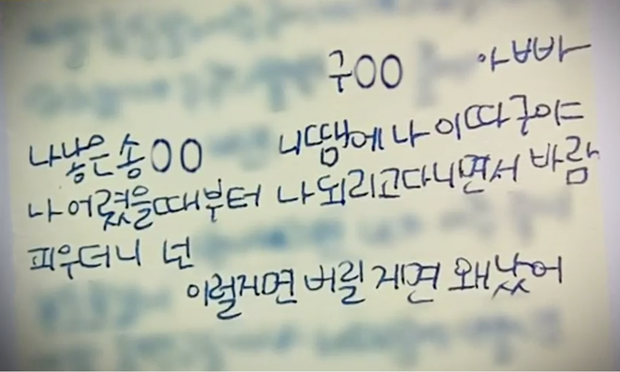 구OO 아빠바
나낳은송OO 니땜에나이따구야
나어렸을때부터 나되리고다니면서 바람
피우더니 넌
이럴지면버릴게면왜낫어